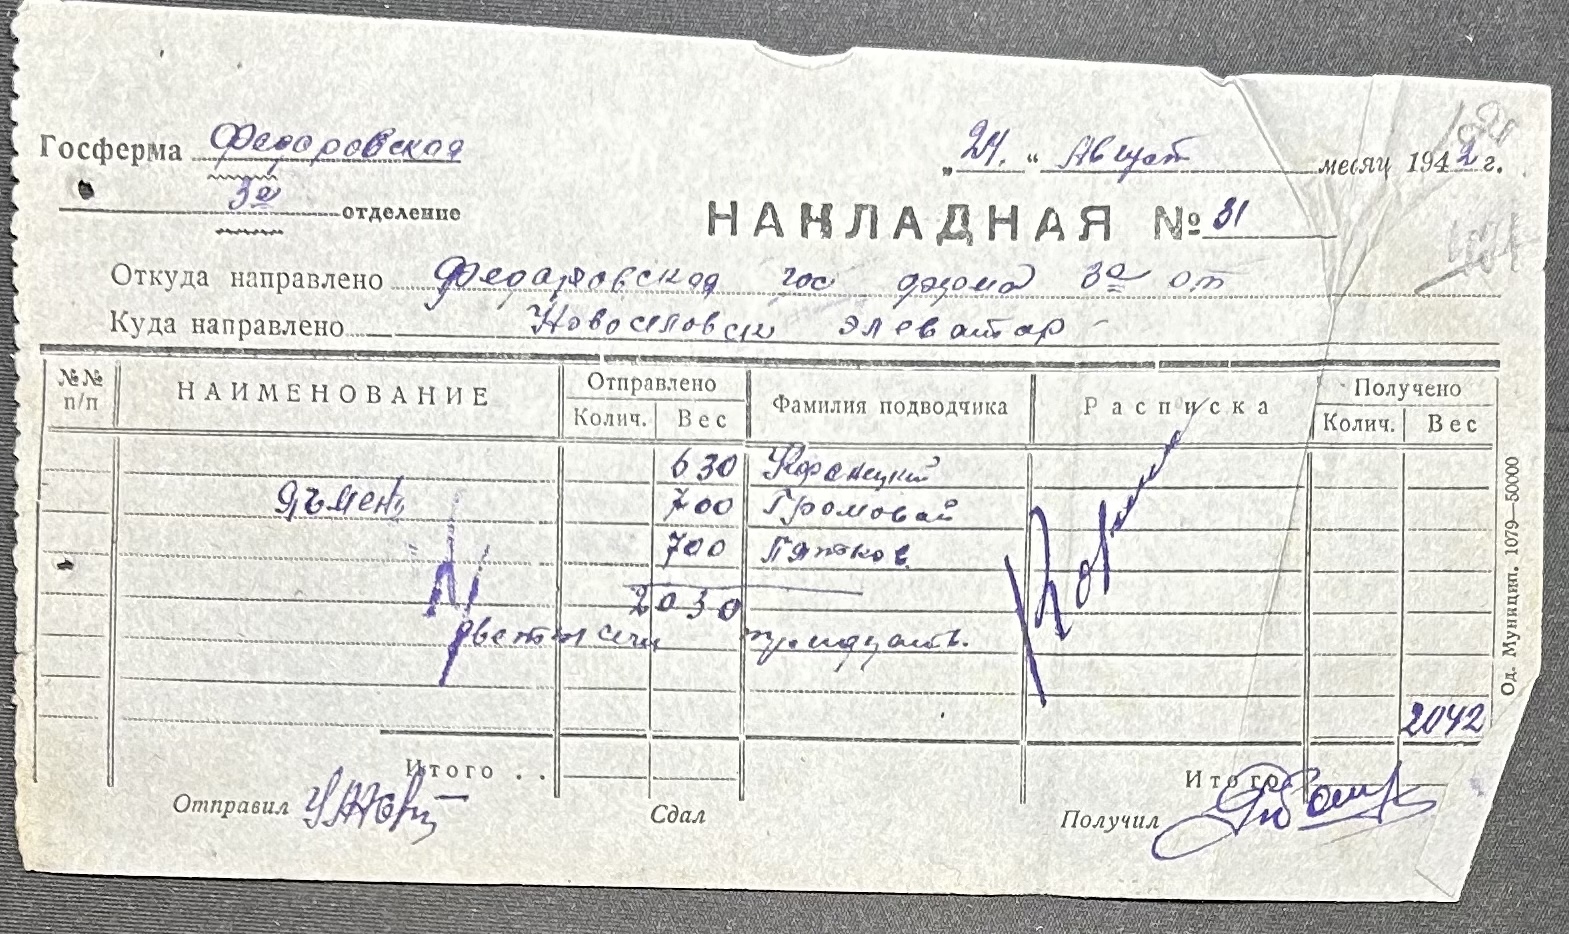 Госферма Федоровская „24.“ Август месяц 1942 г.
3е отделение
НАКЛАДНАЯ № 31
Откуда направлено Федаровская гос ферма 3е от
Куда направлено Новоселовск элеватор
№№ п/п НАИМЕНОВАНИЕ Отправлено Фамилия подводчика Расписка Получено
Колич. Вес Колич. Вес
630
ячмень 700 Громовой
700 Пятков
2030
две тысячи тридцать.
2042
Итого . . Итого
Отправил Сдал Получил
Од. Муницип. 1079—50000